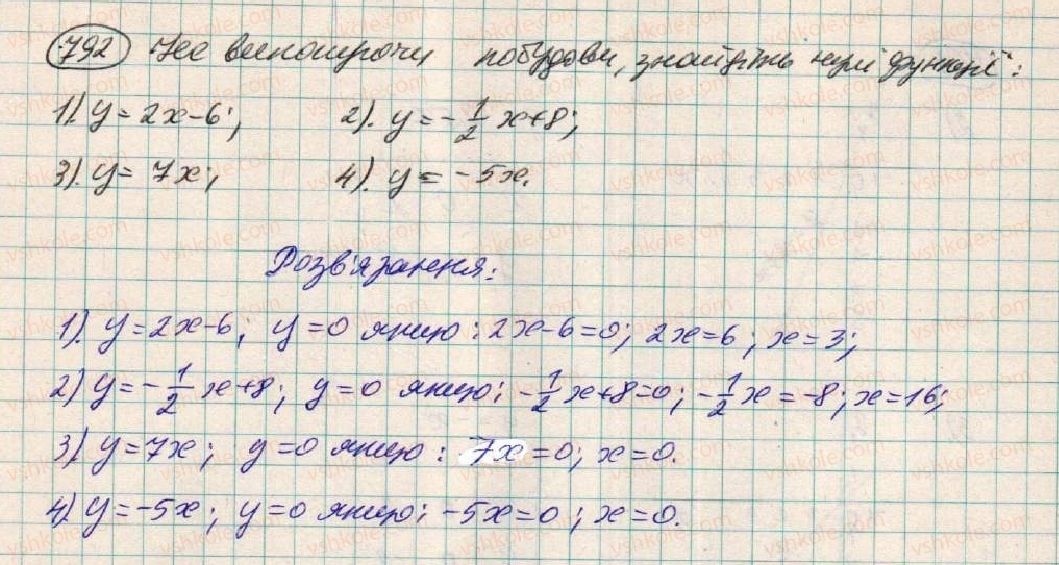 792 Не виконуючи побудови, знайдіть нулі функції:
1). y = 2x-6; 2). y = -1/2 x+8;
3). y = 7x; 4). y = -5x.
Розв'язання:
1). y = 2x-6; y = 0 якщо: 2x-6=0; 2x=6; x=3;
2) y = -1/2 x+8; y = 0 якщо: -1/2 x+8=0; -1/2 x = -8; x=16;
3) y = 7x; y = 0 якщо: 7x = 0; x = 0.
4) y = -5x; y = 0 якщо: -5x = 0; x = 0.